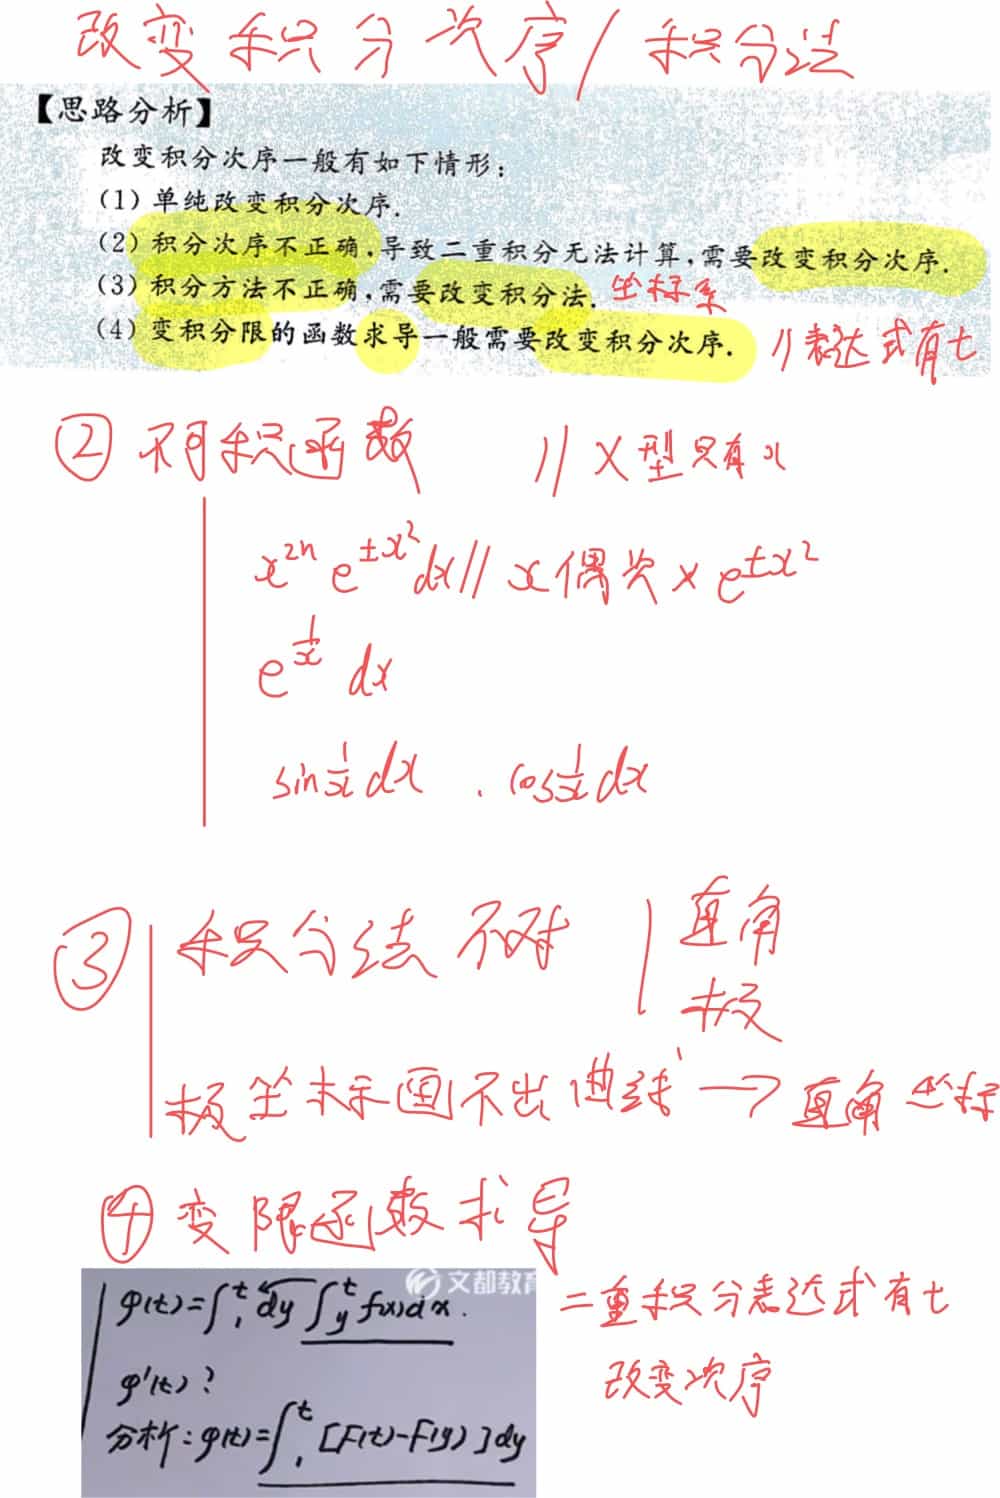 改变积分次序/积分法
【思路分析】
改变积分次序一般有如下情形:
(1) 单纯改变积分次序.
(2) 积分次序不正确,导致二重积分无法计算,需要改变积分次序.
(3) 积分方法不正确,需要改变积分法. 坐标系
(4) 变积分限的函数求导一般需要改变积分次序. //表达式有t
② 不可积函数 // X型只有x
x²ⁿ e^{±x²} dx // x偶次 × e^{±x²}
e^{1/x} dx
sin 1/x dx . cos 1/x dx
③ 积分法不对 | 直角
极
极坐标画不出曲线 → 直角坐标
④ 变限函数求导
文都教育
φ(t)=∫₁ᵗ dy ∫ᵧᵗ f(x)dx.
二重积分表达式有t
φ'(t)?
改变次序
分析:φ(t)=∫₁ᵗ [F(t)-F(y)]dy